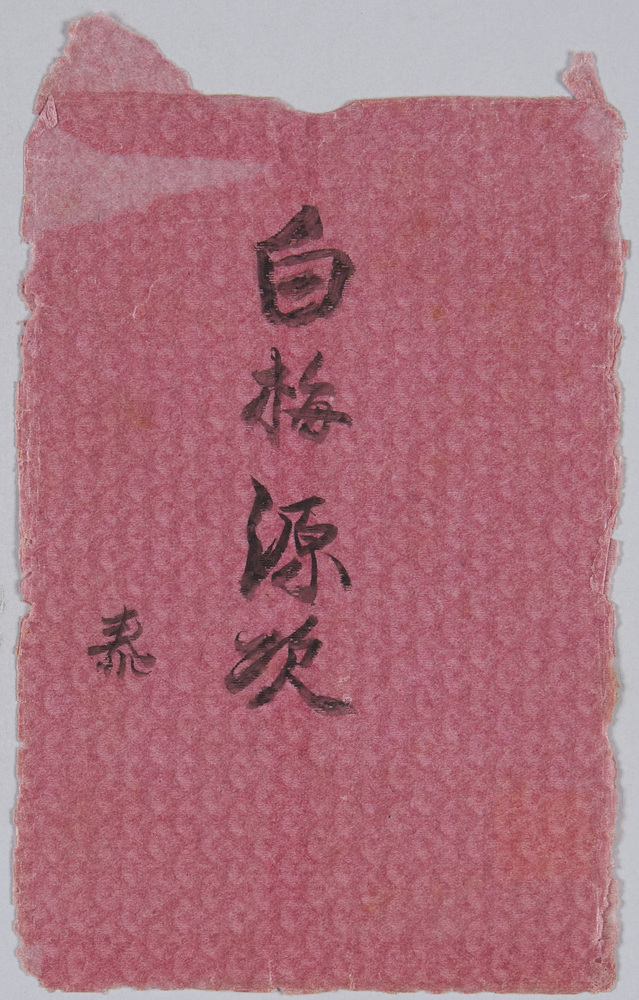 白梅源次
泰